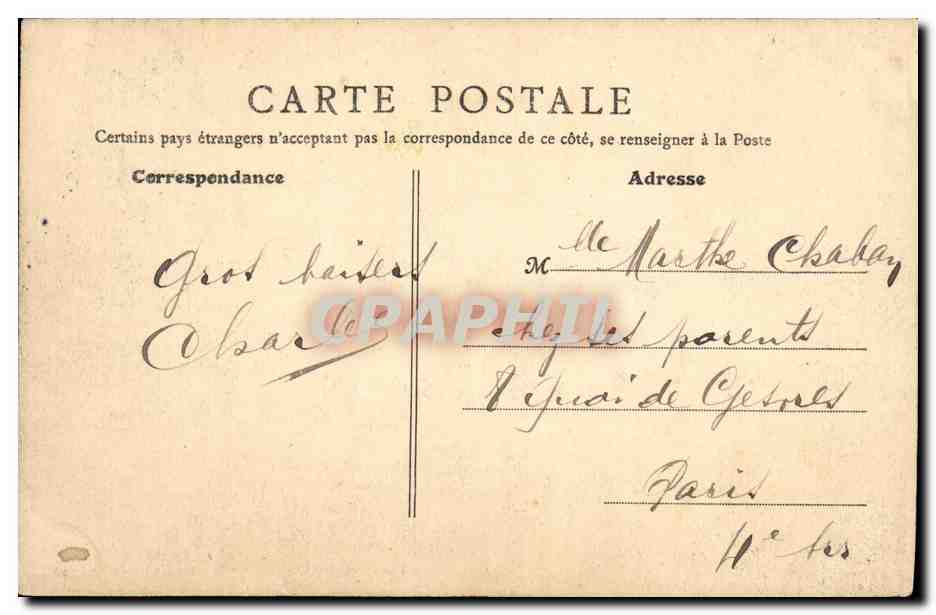 CARTE POSTALE
Certains pays étrangers n'acceptent pas la correspondance de ce côté, se renseigner à la Poste
Correspondance
Adresse
Gros baisers
Charles
Mlle Marthe Chabay
chez ses parents
8 Quai de Gesvres
Paris
4e
CPAPHIL